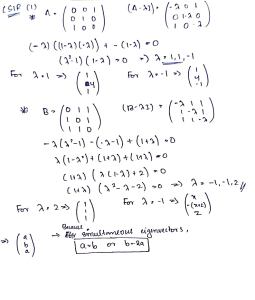 CSIR (1)
* A = ( 0 0 1
0 1 0
1 0 0 ) (A-λI) = ( -λ 0 1
0 1-λ 0
1 0 -λ )
(-λ)((1-λ)(-λ)) + -(1-λ) = 0
(λ²-1)(1-λ) = 0 => λ = 1, 1, -1
For λ = 1 => ( 1
y
1 ) For λ = -1 => ( 1
y
-1 )
* B = ( 0 1 1
1 0 1
1 1 0 ) (B-λI) = ( -λ 1 1
1 -λ 1
1 1 -λ )
-λ(λ²-1) - (-λ-1) + (1+λ) = 0
λ(1-λ²) + (1+λ) + (1+λ) = 0
(1+λ)(λ(1-λ)+2) = 0
(1+λ)(λ²-λ-2) = 0 => λ = -1, -1, 2
For λ = 2 => ( 1
1
1 ) For λ = -1 => ( x
-(x+z)
z )
=> ( a
b
a ) → simultaneous eigenvectors,
a=b or b=-2a